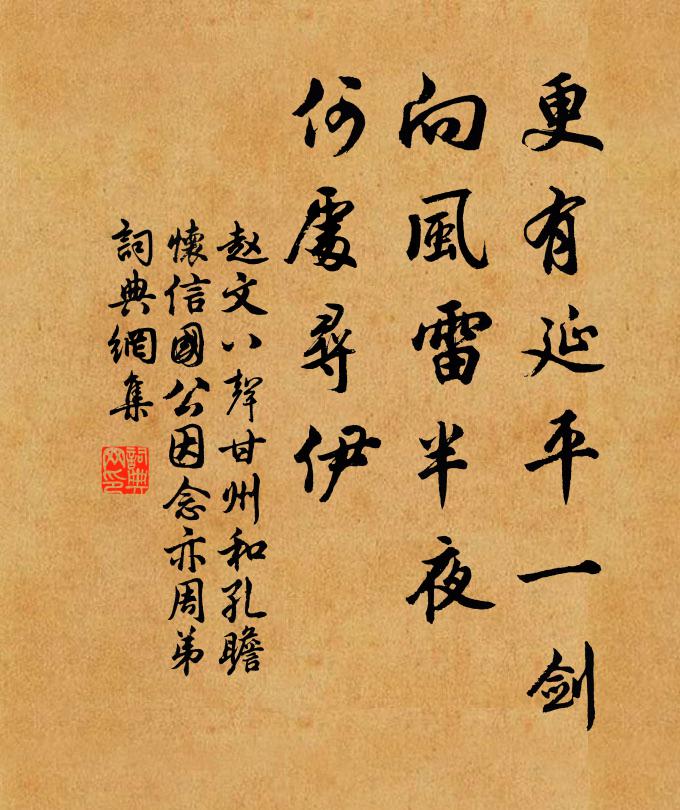 更有延平一劍
向風雷半夜
何處尋伊
赵文八聲甘州和孔瞻
懷信國公因念亦周弟
詞典網集
詞典網印